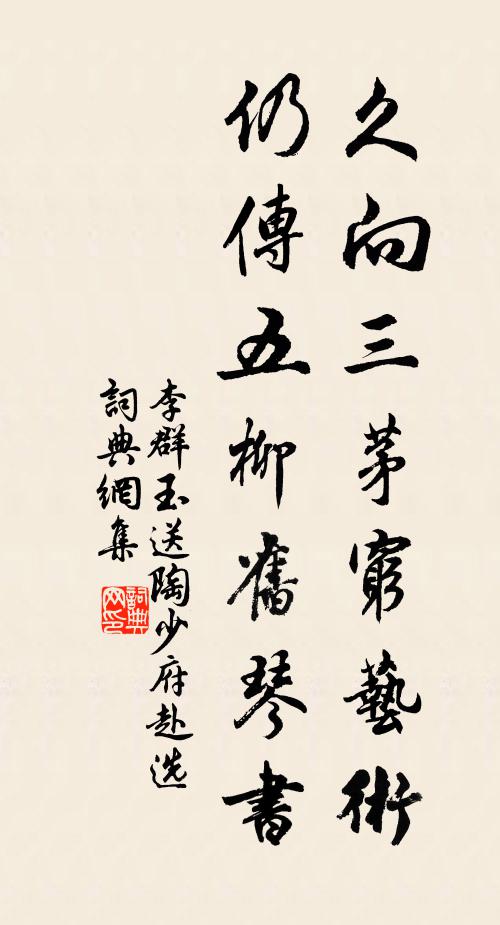 久向三茅窮藝術
仍傳五柳舊琴書
李群玉送陶少府赴选
詞典網集
詞典网印